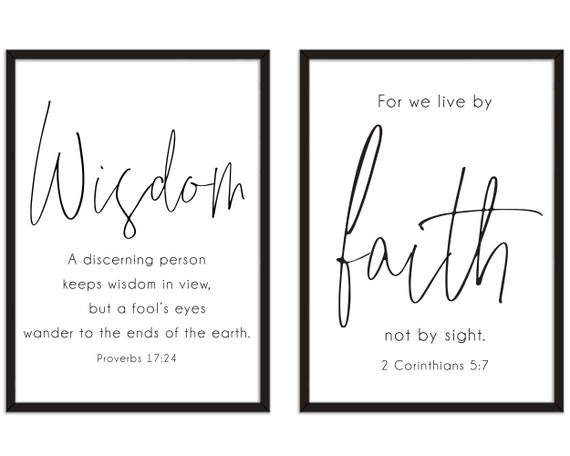 Wisdom
A discerning person
keeps wisdom in view,
but a fool's eyes
wander to the ends of the earth.
Proverbs 17:24
For we live by
faith
not by sight.
2 Corinthians 5:7